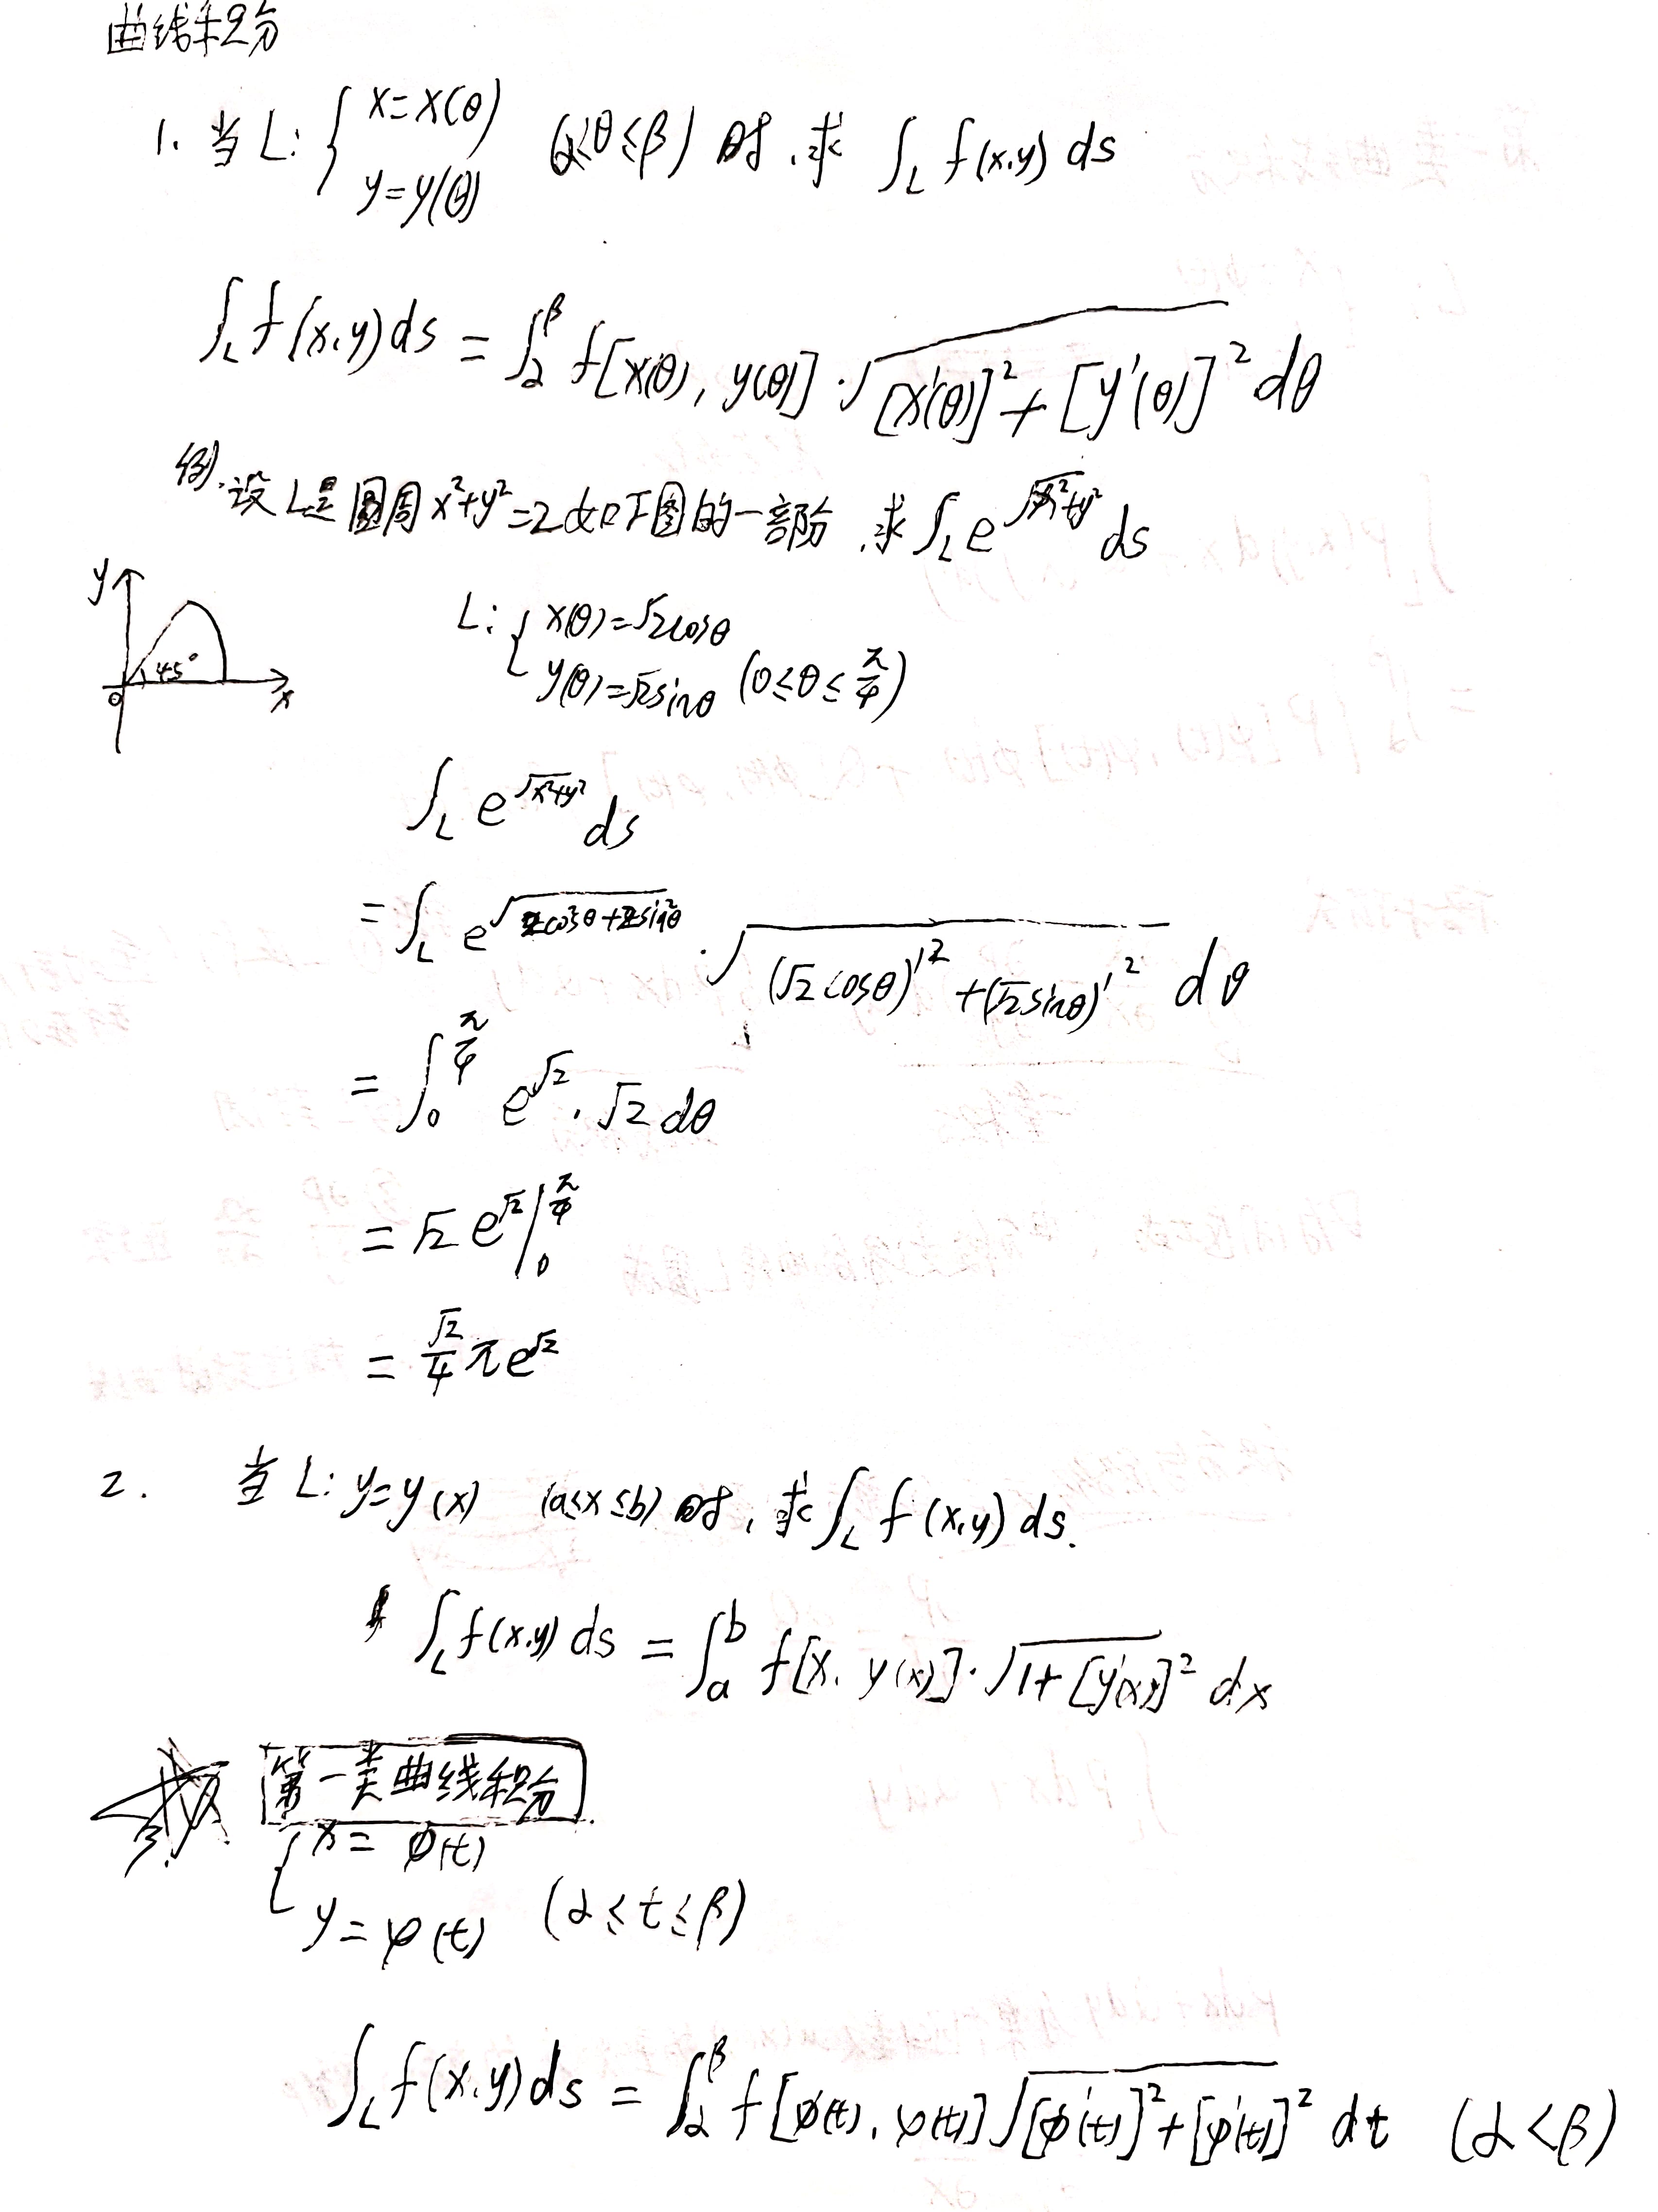 曲线积分
1. 当 L: { x=x(θ) y=y(θ) (α≤θ≤β) 时, 求 ∫_L f(x,y) ds
∫_L f(x,y) ds = ∫_α^β f[x(θ), y(θ)]·√([x'(θ)]²+[y'(θ)]²) dθ
例. 设L是圆周x²+y²=2如下图的一部份, 求∫_L e^√(x²+y²) ds
y
45°
0
x
L: { x(θ)=√2cosθ
y(θ)=√2sinθ (0≤θ≤π/4)
∫_L e^√(x²+y²) ds
= ∫_L e^√(2cos²θ+2sin²θ) · √((√2cosθ)'²+(√2sinθ)'²) dθ
= ∫_0^(π/4) e^√2 · √2 dθ
= √2 e^√2 |_0^(π/4)
= √2/4 πe^√2
2. 当 L: y=y(x) (a≤x≤b) 时, 求∫_L f(x,y) ds.
∫_L f(x,y) ds = ∫_a^b f[x, y(x)]·√(1+[y'(x)]²) dx
3. 第一类曲线积分
{ x= φ(t)
y=ψ(t) (α≤t≤β)
∫_L f(x,y) ds = ∫_α^β f[φ(t), ψ(t)]√([φ'(t)]²+[ψ'(t)]²) dt (α<β)